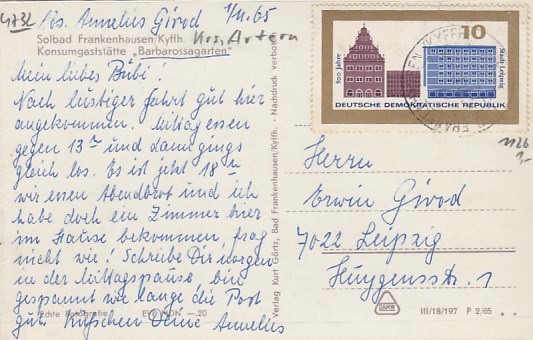 4732 Abs. Annelies Girod 1/11.65
Solbad Frankenhausen/Kyffh. Krs. Artern
Konsumgaststätte „Barbarossagarten"
Mein liebes Bübi!
Nach lustiger Fahrt gut hier
angekommen. Mittagessen
gegen 13 h und dann gings
gleich los. Es ist jetzt 18 h
wir essen Abendbrot und ich
habe doch ein Zimmer hier
im Hause bekommen, frag
nicht wie! Schreibe Dir morgen
in der Mittagspause, bin
gespannt wie lange die Post
geht. Küßchen Deine Annelies
Echte Fotografie EVP MDN —.20
Verlag Kurt Görtz, Bad Frankenhausen/Kyffh. · Nachdruck verboten
10
800 Jahre
Stadt Leipzig
DEUTSCHE DEMOKRATISCHE REPUBLIK
1126
1,-
Herrn
Erwin Girod
7022 Leipzig
Huygensstr. 1
III/18/197 P 2/65